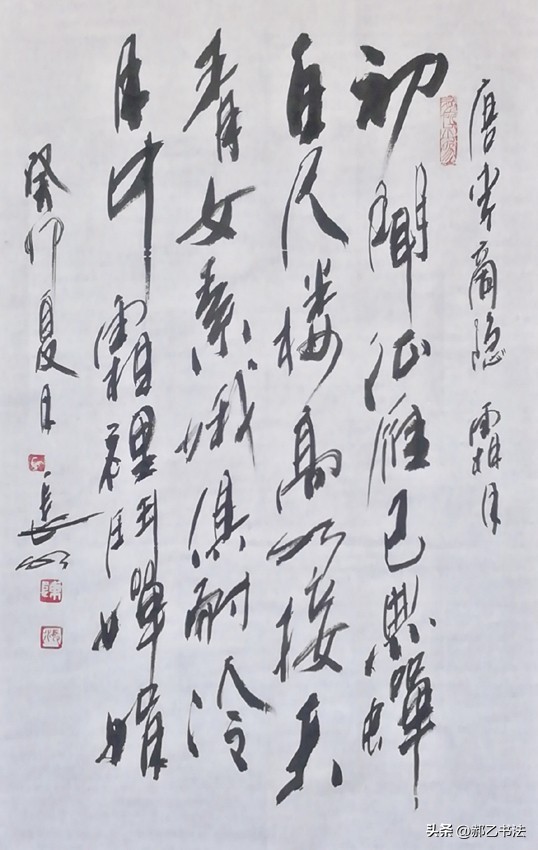 唐李商隐 霜月
初聞征雁已無蟬
百尺楼高水接天
青女素娥俱耐冷
月中霜裡鬥嬋娟
癸卯夏月
头条 @郝乙书法